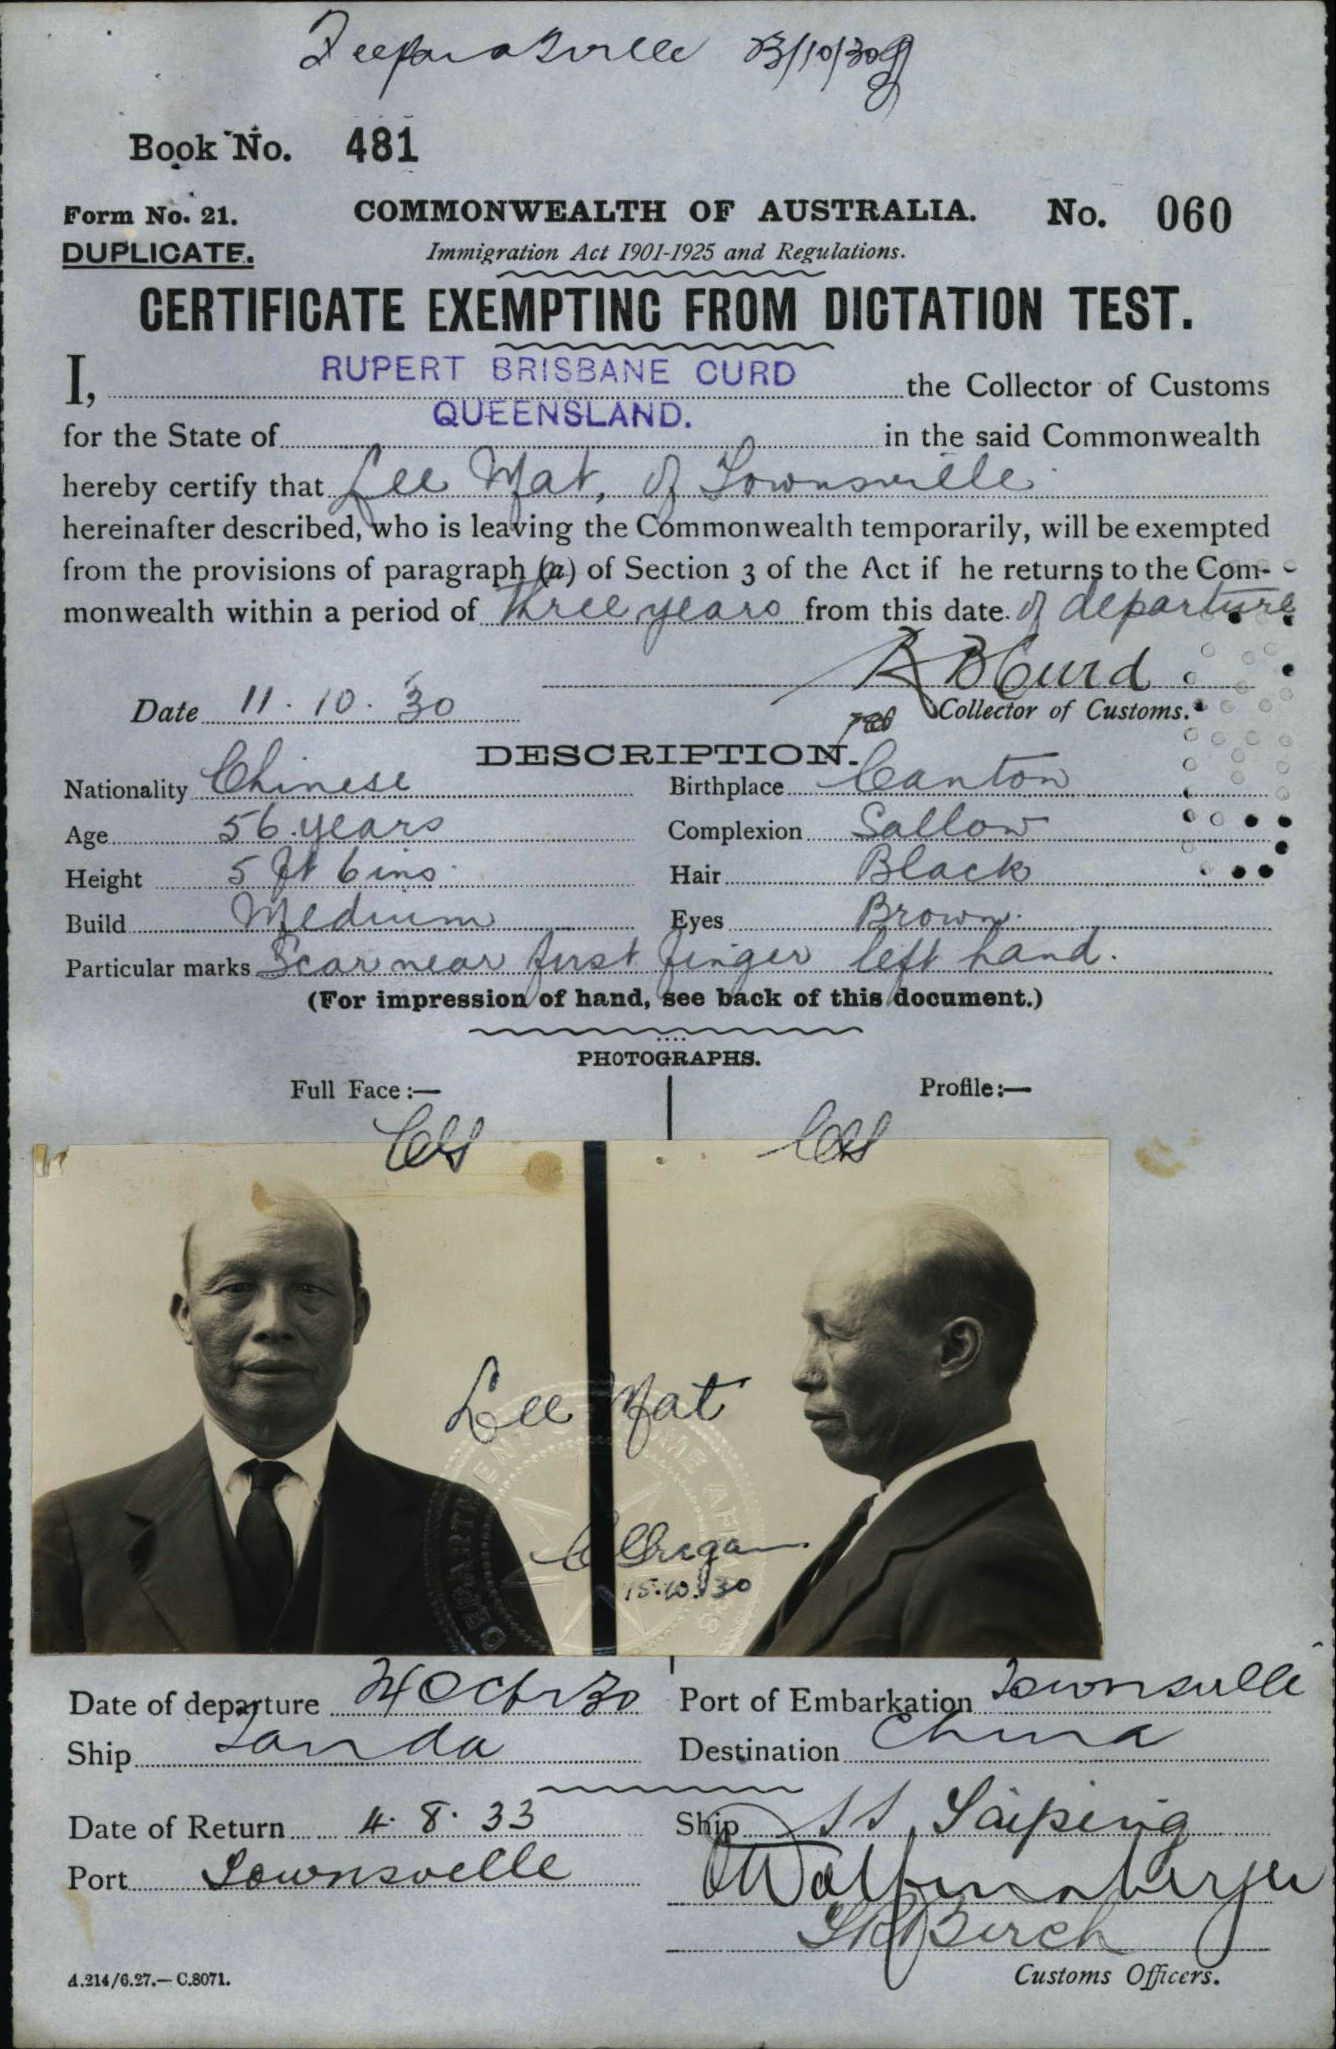 23/10/30
Book No. 481
Form No. 21. COMMONWEALTH OF AUSTRALIA. No. 060
DUPLICATE. Immigration Act 1901-1925 and Regulations.
CERTIFICATE EXEMPTING FROM DICTATION TEST.
I, RUPERT BRISBANE CURD the Collector of Customs
for the State of QUEENSLAND. in the said Commonwealth
hereby certify that Lee Mat, of Townsville
hereinafter described, who is leaving the Commonwealth temporarily, will be exempted
from the provisions of paragraph (a) of Section 3 of the Act if he returns to the Com-
monwealth within a period of three years from this date. of departure
R B Curd
Date 11.10.30 Collector of Customs.
DESCRIPTION.
Nationality Chinese Birthplace Canton
Age 56 years Complexion Sallow
Height 5 ft 6 ins. Hair Black
Build Medium Eyes Brown.
Particular marks Scar near first finger left hand.
(For impression of hand, see back of this document.)
PHOTOGRAPHS.
Full Face:— Profile:—
Lee Mat
15.10.30
Date of departure 24 Octr 30 Port of Embarkation Townsville
Ship Tanda Destination China
Date of Return 4. 8. 33 Ship SS Taiping
Port Townsville
Birch
A.214/6.27.—C.8071. Customs Officers.